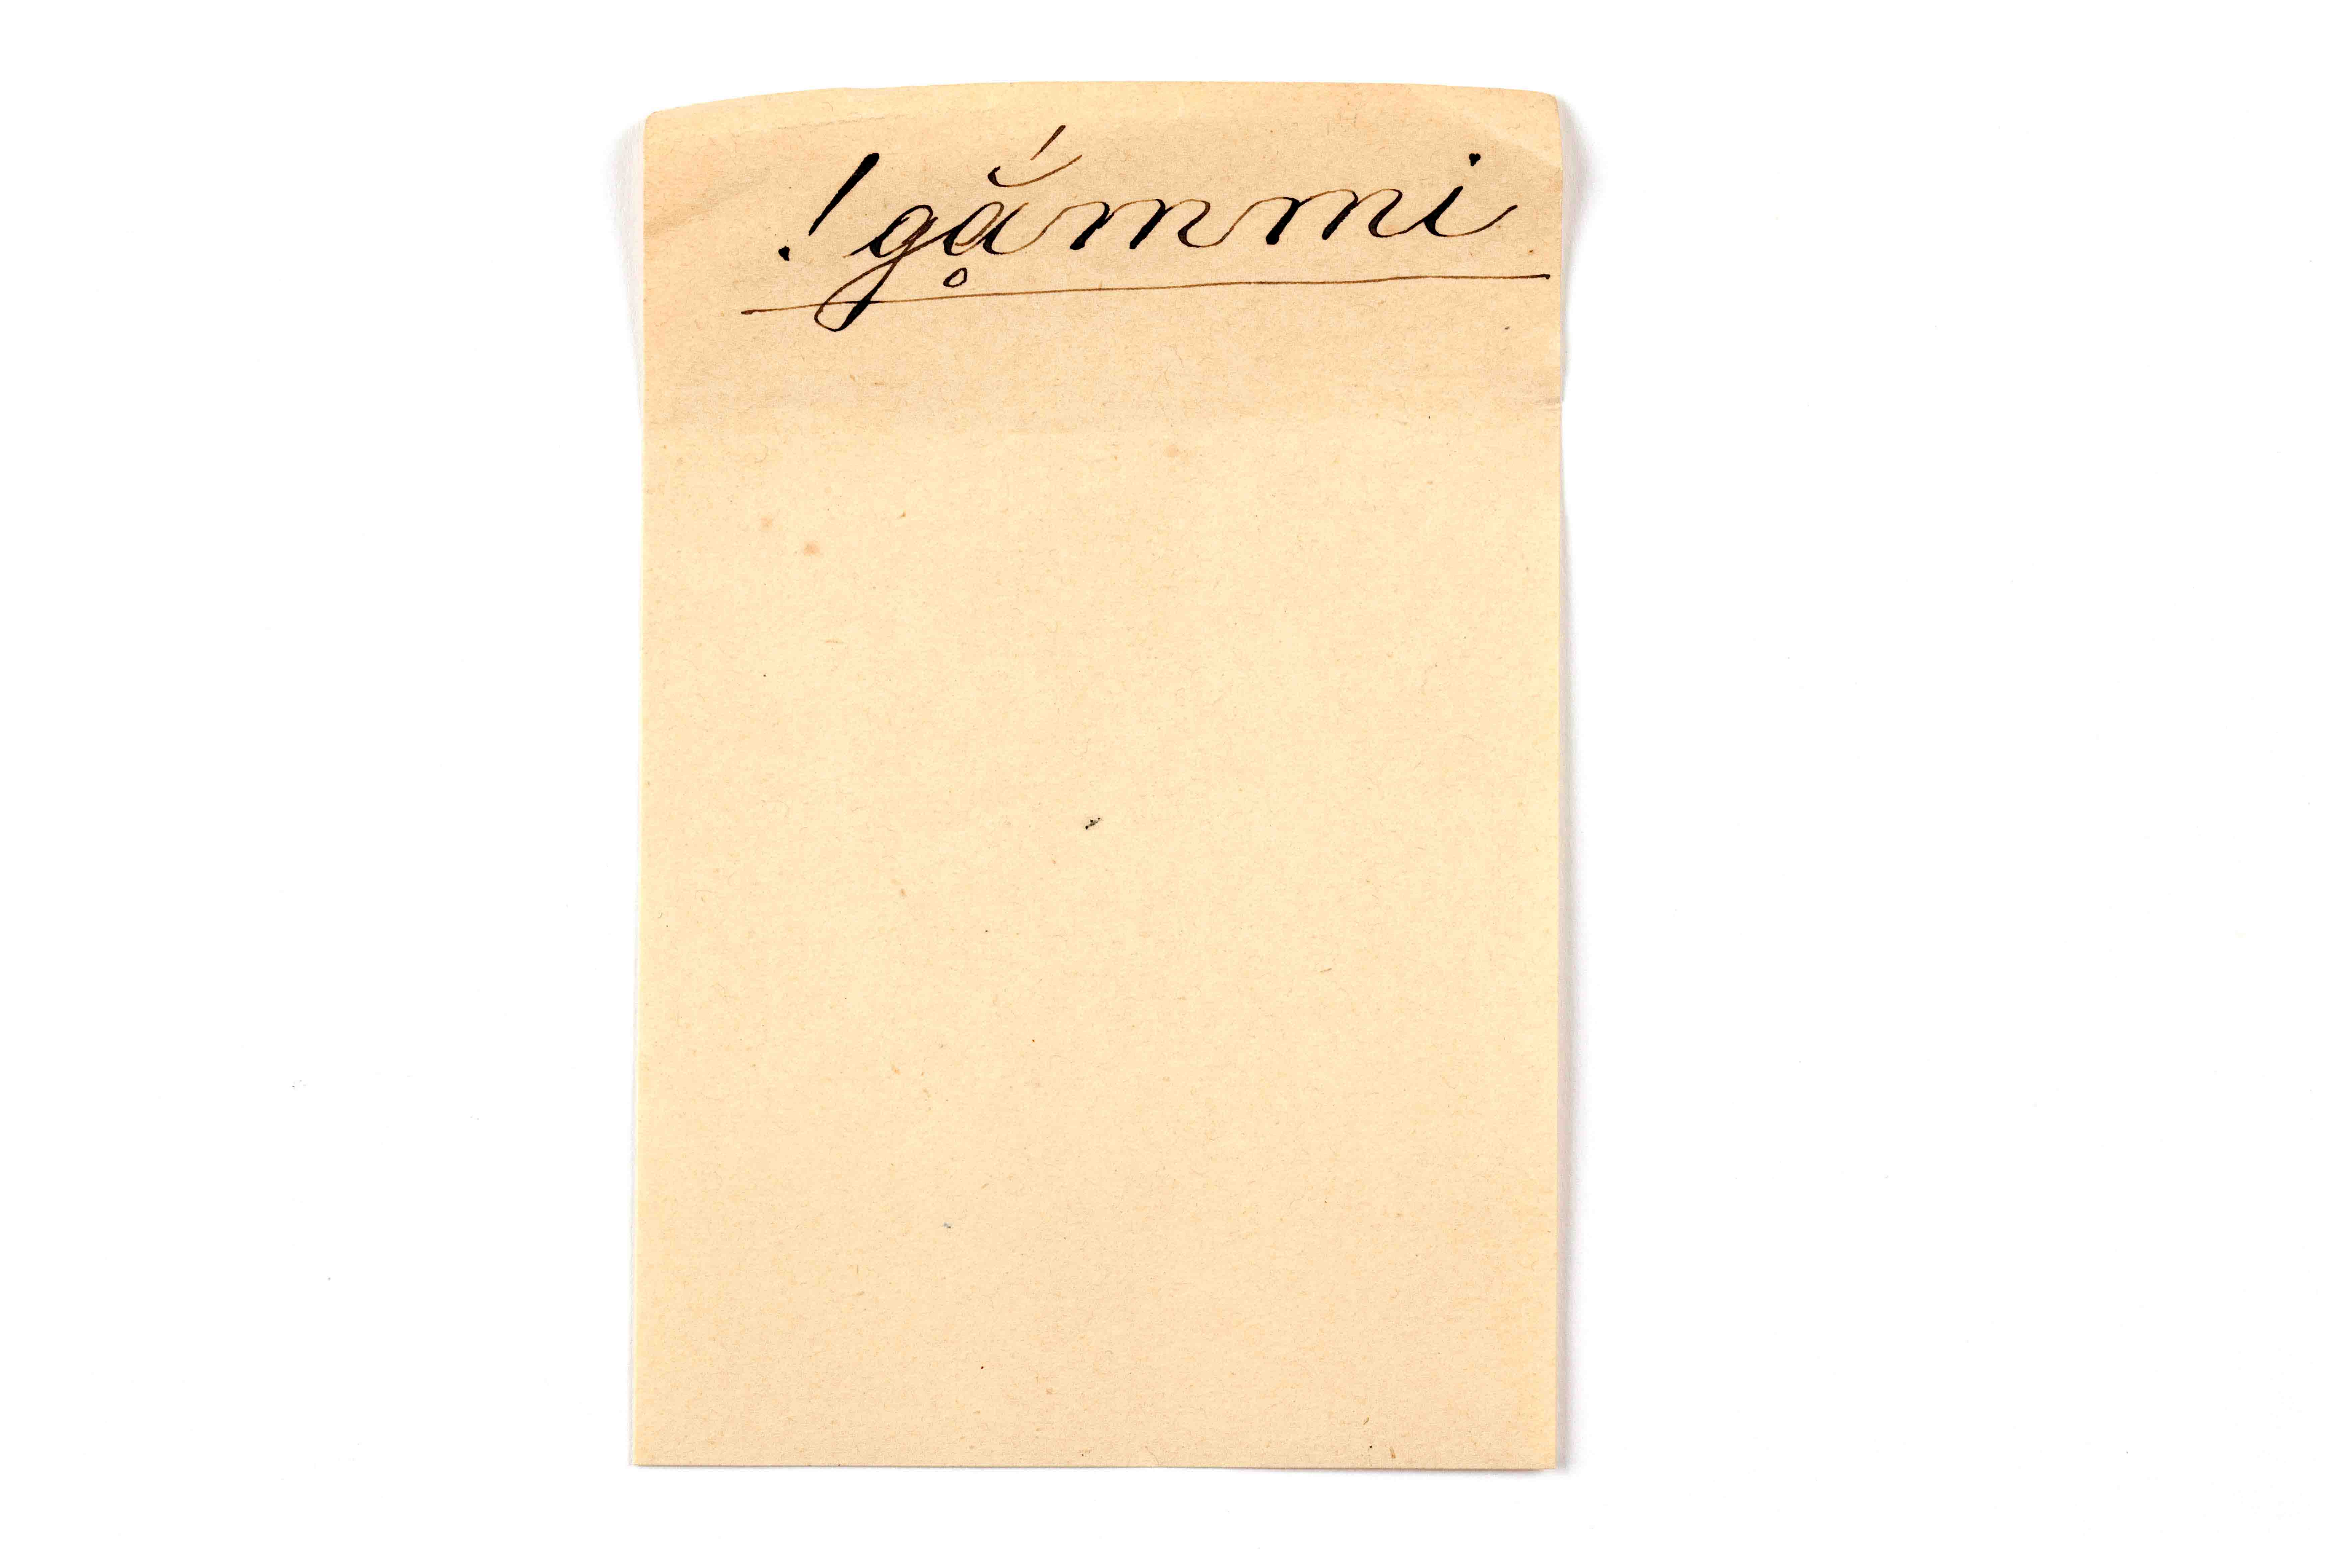 !gḁ̆́mmi